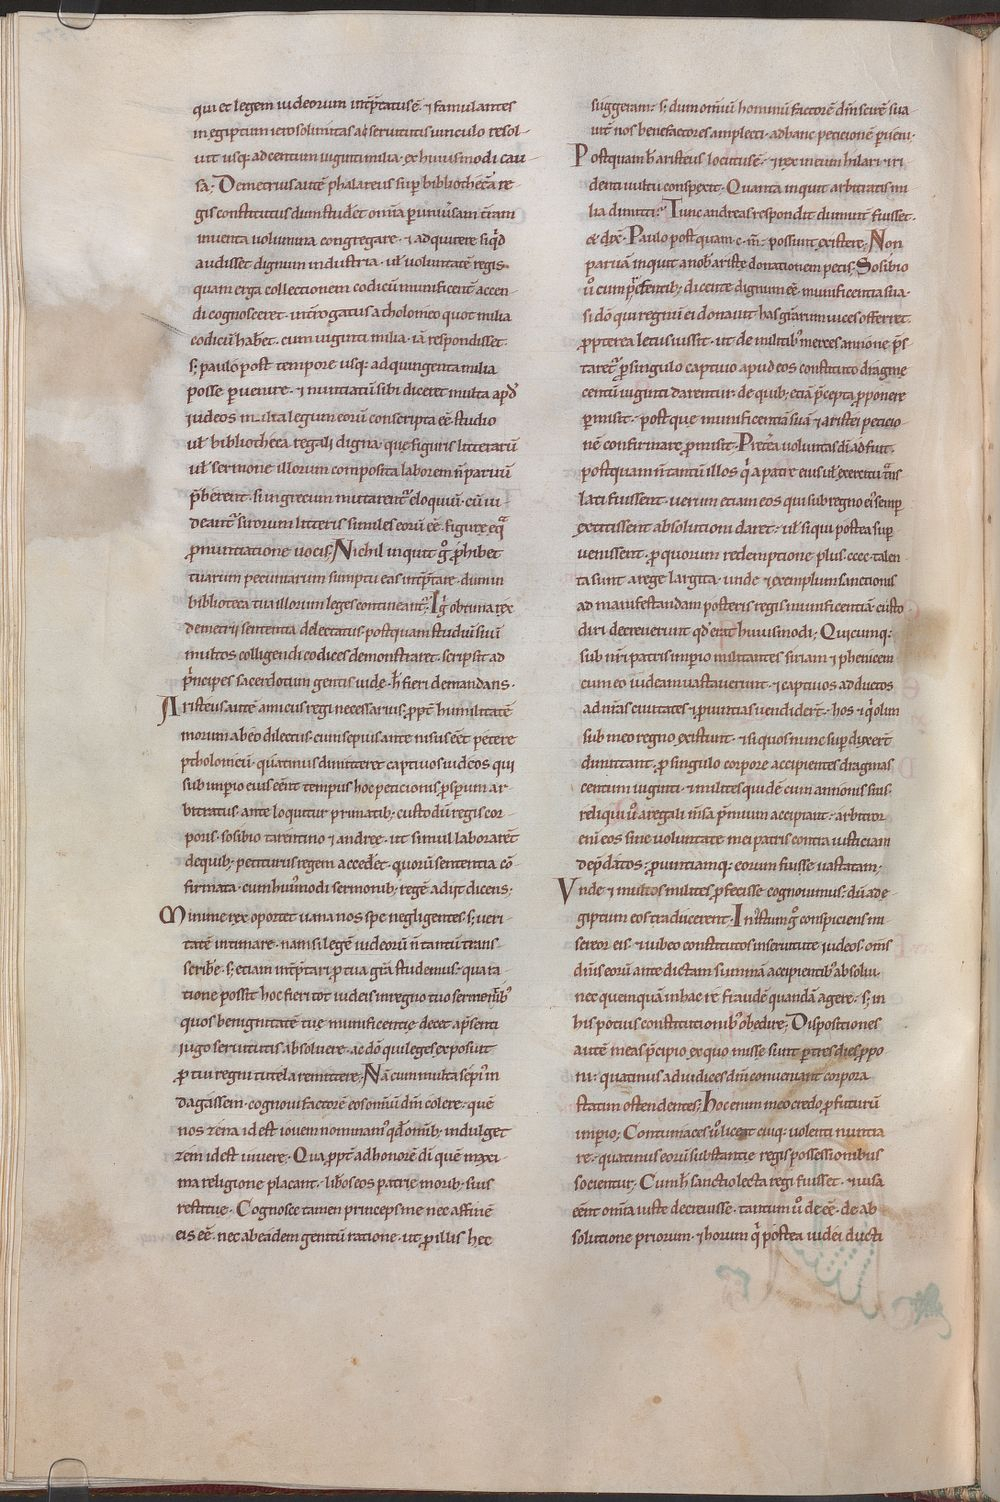 qui et legem iudeorum int̄p̄tatus ē ⁊ famulantes
in egiptum ierosolimitas a seruitutis uinculo resol-
uit usq; ad centum uiginti milia· ex huiusmodi cau-
sa; Demetrius autē phalareus sup̄ bibliothecā re-
gis constitutus dum studet om̄ia p̄ uniūsam t̄ram
inuenta uolumina congregare· ⁊ adquirere siqd̄
audisset dignum industria· ul̄ uoluntatē regis
quam erga collectionem codicū munificenī accen-
di cognosceret· int̄rogatus a tholomeo quot milia
codicū hab̄et· cum uiginti milia· iā respondisset·
s; paulo post tempore usq; ad quingenta milia
posse p̄uenire· ⁊ nunciatū sibi diceret multa apd̓
iudeos in ista legum eorū conscripta eē studio
ul̄ bibliotheca regali digna· que figuris litterarū
ul̄ sermone illorum composita laborem n̄ paruū
p̄berent· si in grecum mutarent᷑ eloquiū· cū ui-
deant᷑ suorum litteris similes eorū eē figurę eq̄
p̱nunciatione uocis; Nichil inquit g̊ p̄hibet
tuarum pecuniarum sumptu eas int̄p̄tare· dum in
biblioteca tua illorum leges contineant᷑; Ig̊ obtima rex
demetrij sententia delectatus· postquam studui sui
multos colligendi codices demonstraret· scripsit ad
p̄ncipes sacerdotum gentis iude· h̄ fieri demandans·
Aristeus autē amicus regi necessarius· ꝓpt̄ humilitatē
morum ab eo dilectus· cum sepius ante nisus eēt petere
ptholomeū· quatinus dimitteret captiuos iudeos qui
sub imperio eius eēnt tempus hoc peticionis p̱spum ar-
bitratus· ante loquitur primatib; custodiū regis cor-
poris· sosibio tarentino ⁊ andree· ut simul laborarēt
de quib; petiturus regem accedēt· quorū sententia cō-
firmata· cum hui᷒modi sermonib; regē adijt dicens;
Minime rex oportet uana nos spe negligentes· s; ueri-
tatē intimare· nam si legē iudeorū n̄ tantū trans-
scribe· s; etiam int̄p̄tari p̱ tua gr̄a studemus· qua ra-
tione possēt hoc fieri tot iudeis in regno tuo seruientib᷒
quos benignitatē tue munificentię decet ap̄senti
iugo seruitutis absoluere· ac dō qui leges exposuit
ꝓ tui regni tutela remittere; Nā cum multa sepi᷒ in-
dagassem· cognoui factorē eos om̄iū dm̄ colere· quē
nos zena id est iouem nominam᷒ qd̓ om̄ib; indulget
zem id est uiuere· Qua ꝓpt̄ ad honorē di quē maxi-
ma religione placant· lib̄os eos patrie morib; suis
restitue· Cognosce tamen princeps me nec affinē
eis eē· nec ab eādem gentiū ratione· ut ꝓ illis hec
suggeram· s; dum om̄iū hominū factorē dm̄ scirē sua-
uit̄ nos benefactores amplecti· ad hanc peticionē p̱ueni·
Postquam h̄ aristeus locutus ē· ⁊ rex in eum hilari ⁊ ri-
denti uultu conspexit· Quanta inquit arbitraris mi-
lia dimitti; Tunc andreas respondit dum int̄fuisset·
& dix̄· Paulo post quam· c· m̄· possunt existere; Non
paruā inquit a nob̄ aristę donationem petis; Sosibio
ū cum p̄sentib; dicente dignum eē· munificentia sua·
si dō qui regnū ei donauit has gr̄arum uices offerret·
ꝓpterea letus iussit· ut de militib᷒ merces annone p̄s-
taret᷑ ꝓ singulo captiuo apud eos constituto dragme
centū uiginti darentur· de quib; etiā p̄cepta proponere
p̱misit· postque munificentiā suā ⁊ aristei peticio-
nē confirmare p̱misit· Pret̄ea uoluntas di adfuit·
postquam n̄ tantū illos q̄ a patre eius ul̄ exercitu t̄ns-
lati fuissent· uerum etiam eos qui sub regno ei᷒ semp̱
extitissent absolutioni daret· ul̄ si qui postea sup̱-
uenissent· ꝓ quorum redemptione plus· cccc· talen-
ta sunt a rege largita· unde ⁊ exemplum sanctionis
ad manifestandam posteris regis munificentiā custo-
diri decreuerunt qd̓ erat huiusmodi; Quicumq;
sub nr̄i patris imp̱io militantes siriam ⁊ phenicem
cum eo iudeam uastauerunt· ⁊ captiuos adductos
ad nr̄as ciuitates ⁊ p̱uintias uendiderēt· hos ⁊ q̄ olim
sub meo regno existunt· ⁊ si quos nunc sup̱ duxerēt
dimittant· ꝓ singulo corpore accipientes dragmas
centum uiginti· ⁊ milites quidē cum annonis suis·
reliqui ū a regali m̄sa p̄mium accipiant· arbitror
eni eos sine uoluntate mei patris contra iusticiam
dep̄datos· p̱uintiamq; eorum fuisse uastatam;
Vnde ⁊ multos milites ꝓfecisse cognouimus· dū ad e-
giptum eos traducerent· In᷒stum g̊ conspiciens mi-
sereor eis· ⁊ iubeo constitutos in seruitute iudeos· oms̄
dn̄is eorū ante dictam summā accipientib᷒ absolui·
nec quemquā in hac re fraudē quandā agere· s; in
his potius constitutionib᷒ obedire; Dispositiones
autē meas p̄cipio ex quo misse sunt p̱ tres dies ꝓpo-
ni· quatinus ad uidices dm̄ conueniant corpora
statim ostendentes; Hoc enim meo credo ꝓfuturū
imp̱io; Contumaces ū liceat cuiq; uolenti nuntia-
re· quatinus eorū substantie regis possessionibus
socientur; Cum h̄ sanctio lecta regi fuisset· ⁊ uisa
eēnt om̄ia iuste decreuisse· tantum ū deēē· de ab-
solutione priorum· ⁊ horum q̄ postea iudei ducti